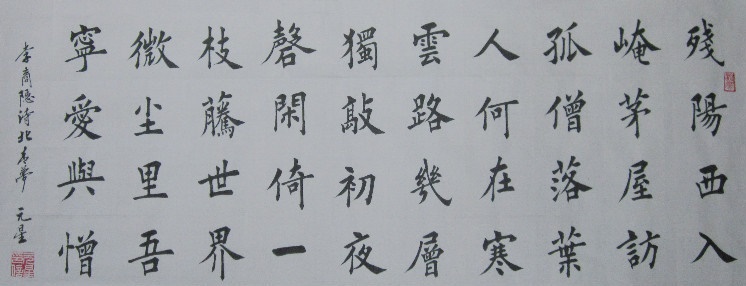 殘陽西入
崦茅屋訪
孤僧落葉
人何在寒
雲路幾層
獨敲初夜
磬閑倚一
枝騰世界
微尘里吾
寧愛與憎
李商隐詩北青萝 元星